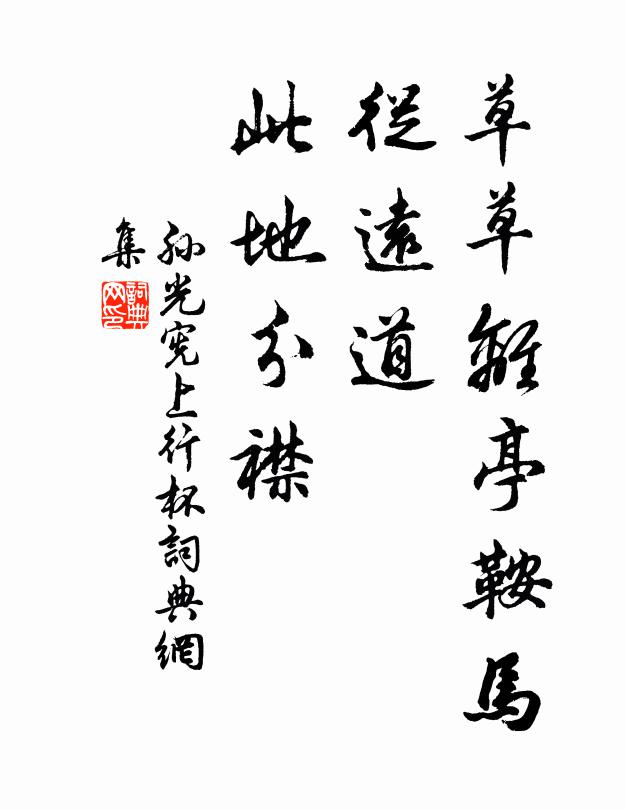 草草離亭鞍馬
從遠道
此地分襟
孫光憲上行杯詞典網
集
詞典
网印